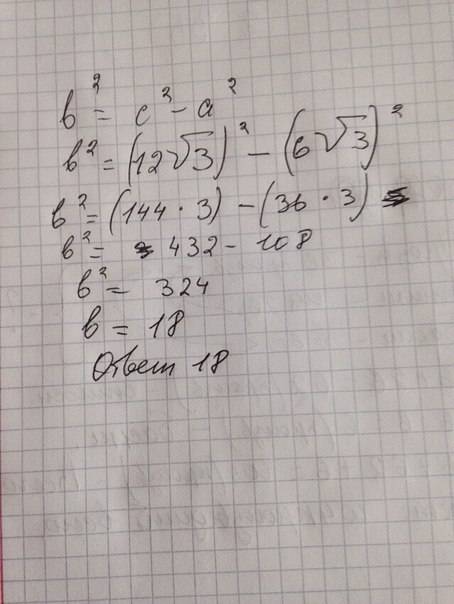 в² = с² - а²
в² = (12√3)² - (6√3)²
в² = (144 · 3) - (36 · 3)
в² = 432 - 108
в² = 324
в = 18
Ответ 18